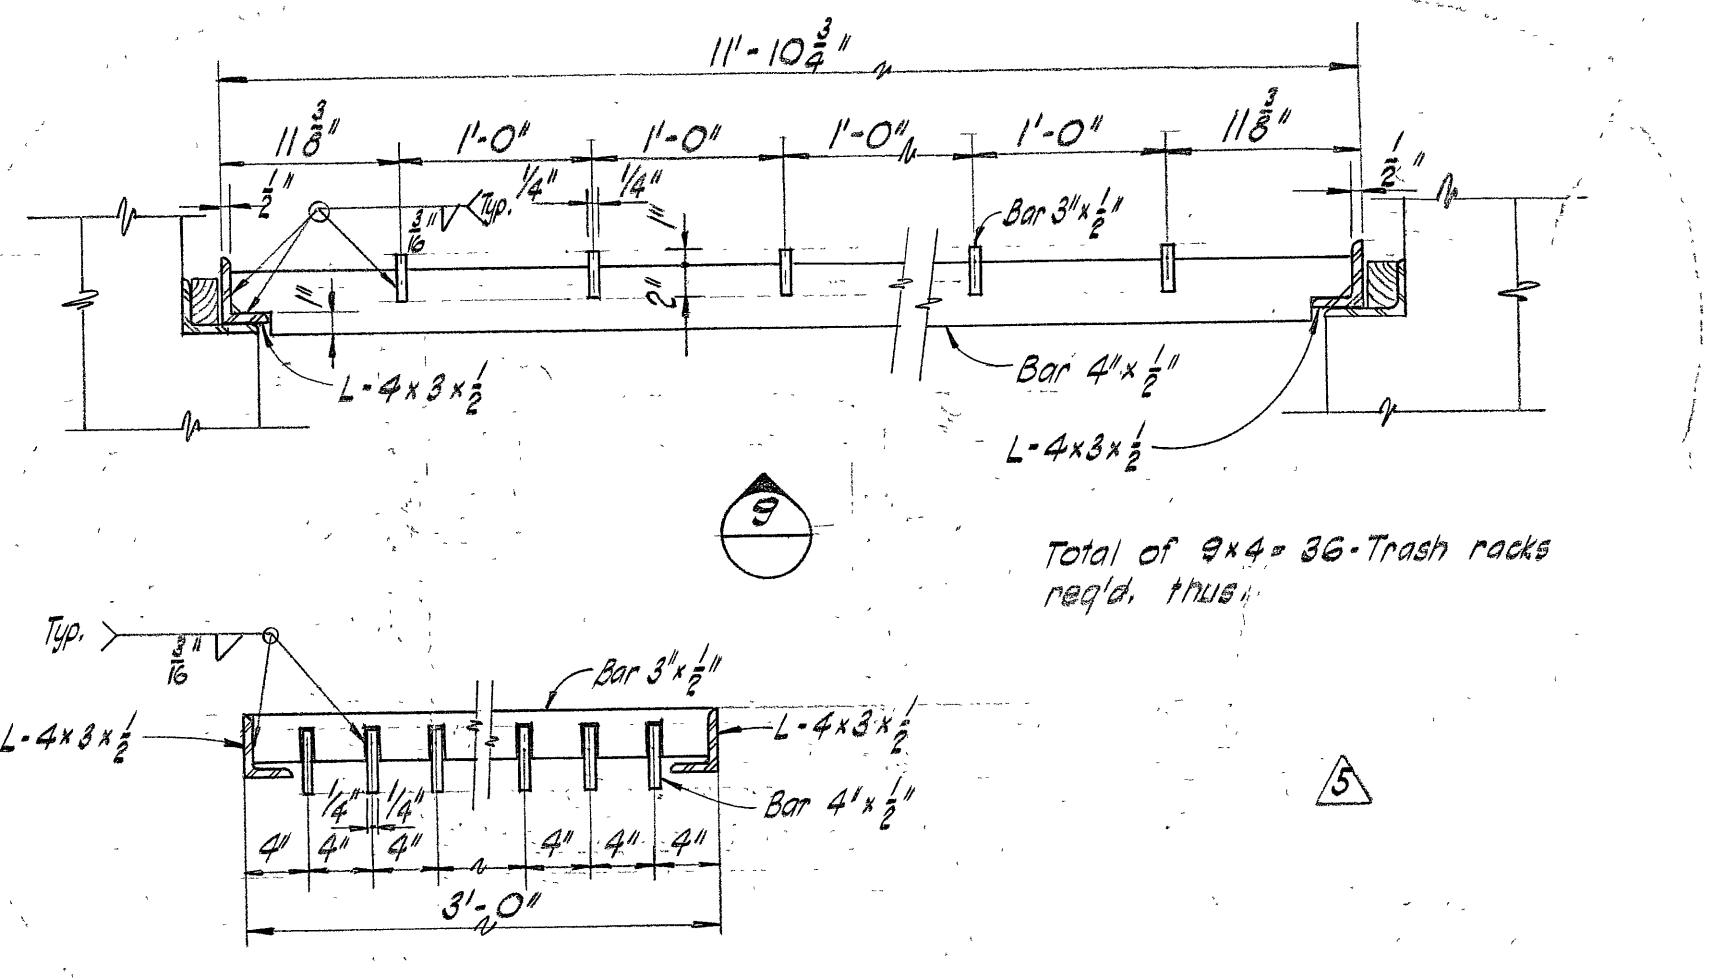 11'-10 3/4"
11 3/8" 1'-0" 1'-0" 1'-0" 1'-0" 11 3/8"
1/2" 3/16" Typ. 1/4" 1/4" 1" 1/2"
Bar 3" x 1/2"
1" 2"
L-4 x 3 x 1/2
Bar 4" x 1/2"
L-4 x 3 x 1/2
9
Total of 9x4= 36-Trash racks
req'd. thus
Typ. 3/16"
Bar 3" x 1/2"
L-4 x 3 x 1/2
L-4 x 3 x 1/2
Bar 4" x 1/2"
1/4" 1/4"
4" 4" 4" 4" 4" 4"
3'-0"
5